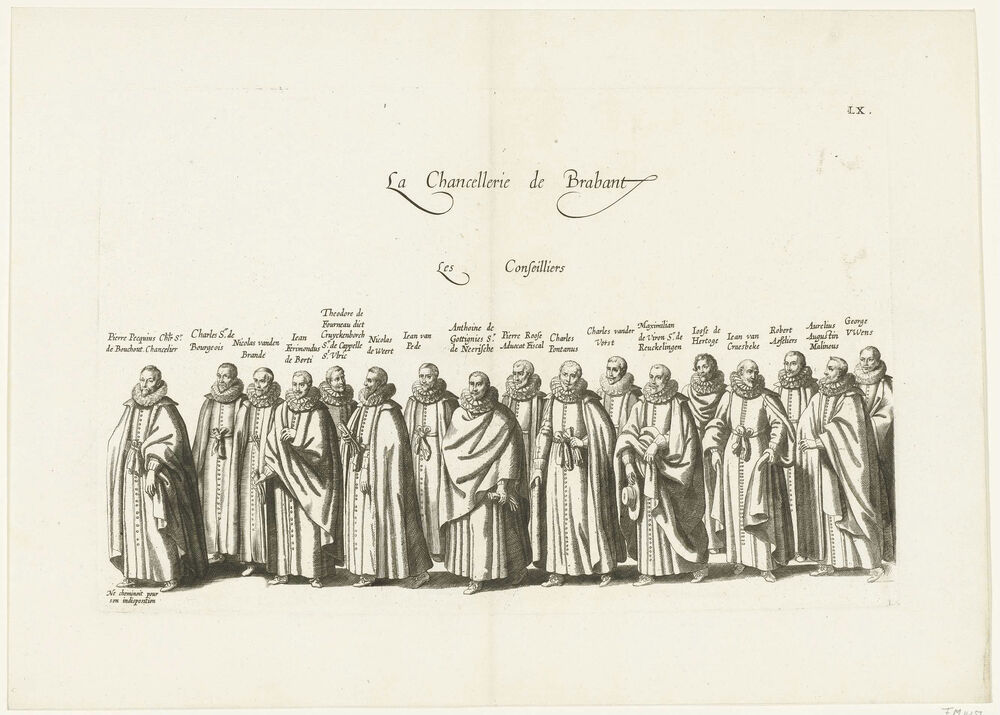 LX.
La Chancellerie de Brabant
Les Conſeilliers
Pierre Pecquius Chlr Sr.
de Bouchout Chancelier
Charles Sr. de
Bourgeois
Nicolas vanden
Brande
Iean
Ferimondus
de Berti
Theodore de
Fourneau dict
Cruyckenborch
Sr. de Cappelle
St. Vlric
Nicolas
de Weert
Iean van
Pede
Anthoine de
Gottignies Sr.
de Neeriſche
Pierre Rooſe
Aduocat Fiscal
Charles
Fontanus
Charles vander
Vorst
Maximilian
de Viron Sr. de
Reuckelingen
Iooſt de
Hertoge
Iean van
Croesbeke
Robert
Aſſeliers
Aurelius
Auguſtin
Malineus
George
VWens
Ne cheminoit pour
son indisposition